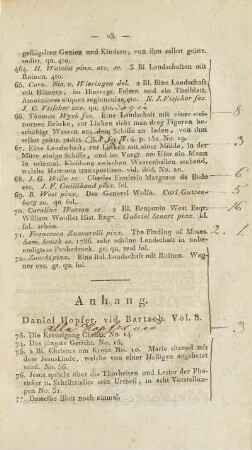 — 28. —
geflügelten Genien und Kindern, von ihm selbst geätzt.
radirt. qu. 4to.
464. H. Watelet pinx. etc. sc. 2 Bl. Landschaften mit
Ruinen. 4to.
65. Corn. Nic. v. Wieringen del. 2 Bl. Eine Landschaft,
mit Häusern, im Hintergr. Felsen und ein Titelblatt,
Amoeniores aliquot regiunculae etc. N. J. Visscher fec.
J. C. Visscher exc. qu. 4to.
66. Thomas Wyck fec. Eine Landschaft mit einer stei-
nernen Brücke, zur Linken sieht man drey Figuren be-
schäftigt Waaren aus dem Schiffe zu laden, von ihm
selbst geätzt. radirt. 4. p. 151. No. 19.
67. Eine Landschaft am Wasser mit einer Mühle, in der
Mitte einige Schiffe, und im Vorgr. ein Mann
in oriental. Kleidung zwischen Waarenballen stehend,
welche Matrosen transportiren. vid. ibid. No. 20.
68. J. G. Wille sc. Charles Frederic Margrave de Bade
etc. J. F. Guillibaud pinx. fol.
69. B. West pinx. Der General Wolfe. Carl Gutten-
berg sc. qu. fol.
70. Caroline Watson sc. 2 Bl. Benjamin West Esqr.
William Woollet Hist. Engr. Gabriel Stuart pinx. kl.
fol. schön.
71. Francesco Zuccarelli pinx. The Finding of Moses.
Sam. Smith sc. 1788. sehr schöne Landschaft in unbe-
endigtem Probedruck. gr. qu. roy. fol.
72. Zocchi pinx. Eine ital. Landschaft mit Ruinen. Wag-
ner exc. gr. qu. fol.
Anhang.
Daniel Hopfer, vid. Bartsch. Vol. 8.
73. Die Kreuzigung Christi. No. 14.
74. Das jüngste Gericht. No. 16.
75. 2 Bl. Christus am Kreuz No. 40. Marie sitzend mit
dem Jesuskinde, welche von einer Heiligen angebetet
wird. No. 36.
76. Jesus spricht über die Thorheiten und Laster der Pha-
risäer u. Schriftsteller sein Urtheil, in acht Vorstellun-
gen No. 31.
77. Dasselbe Blatt noch einmal.